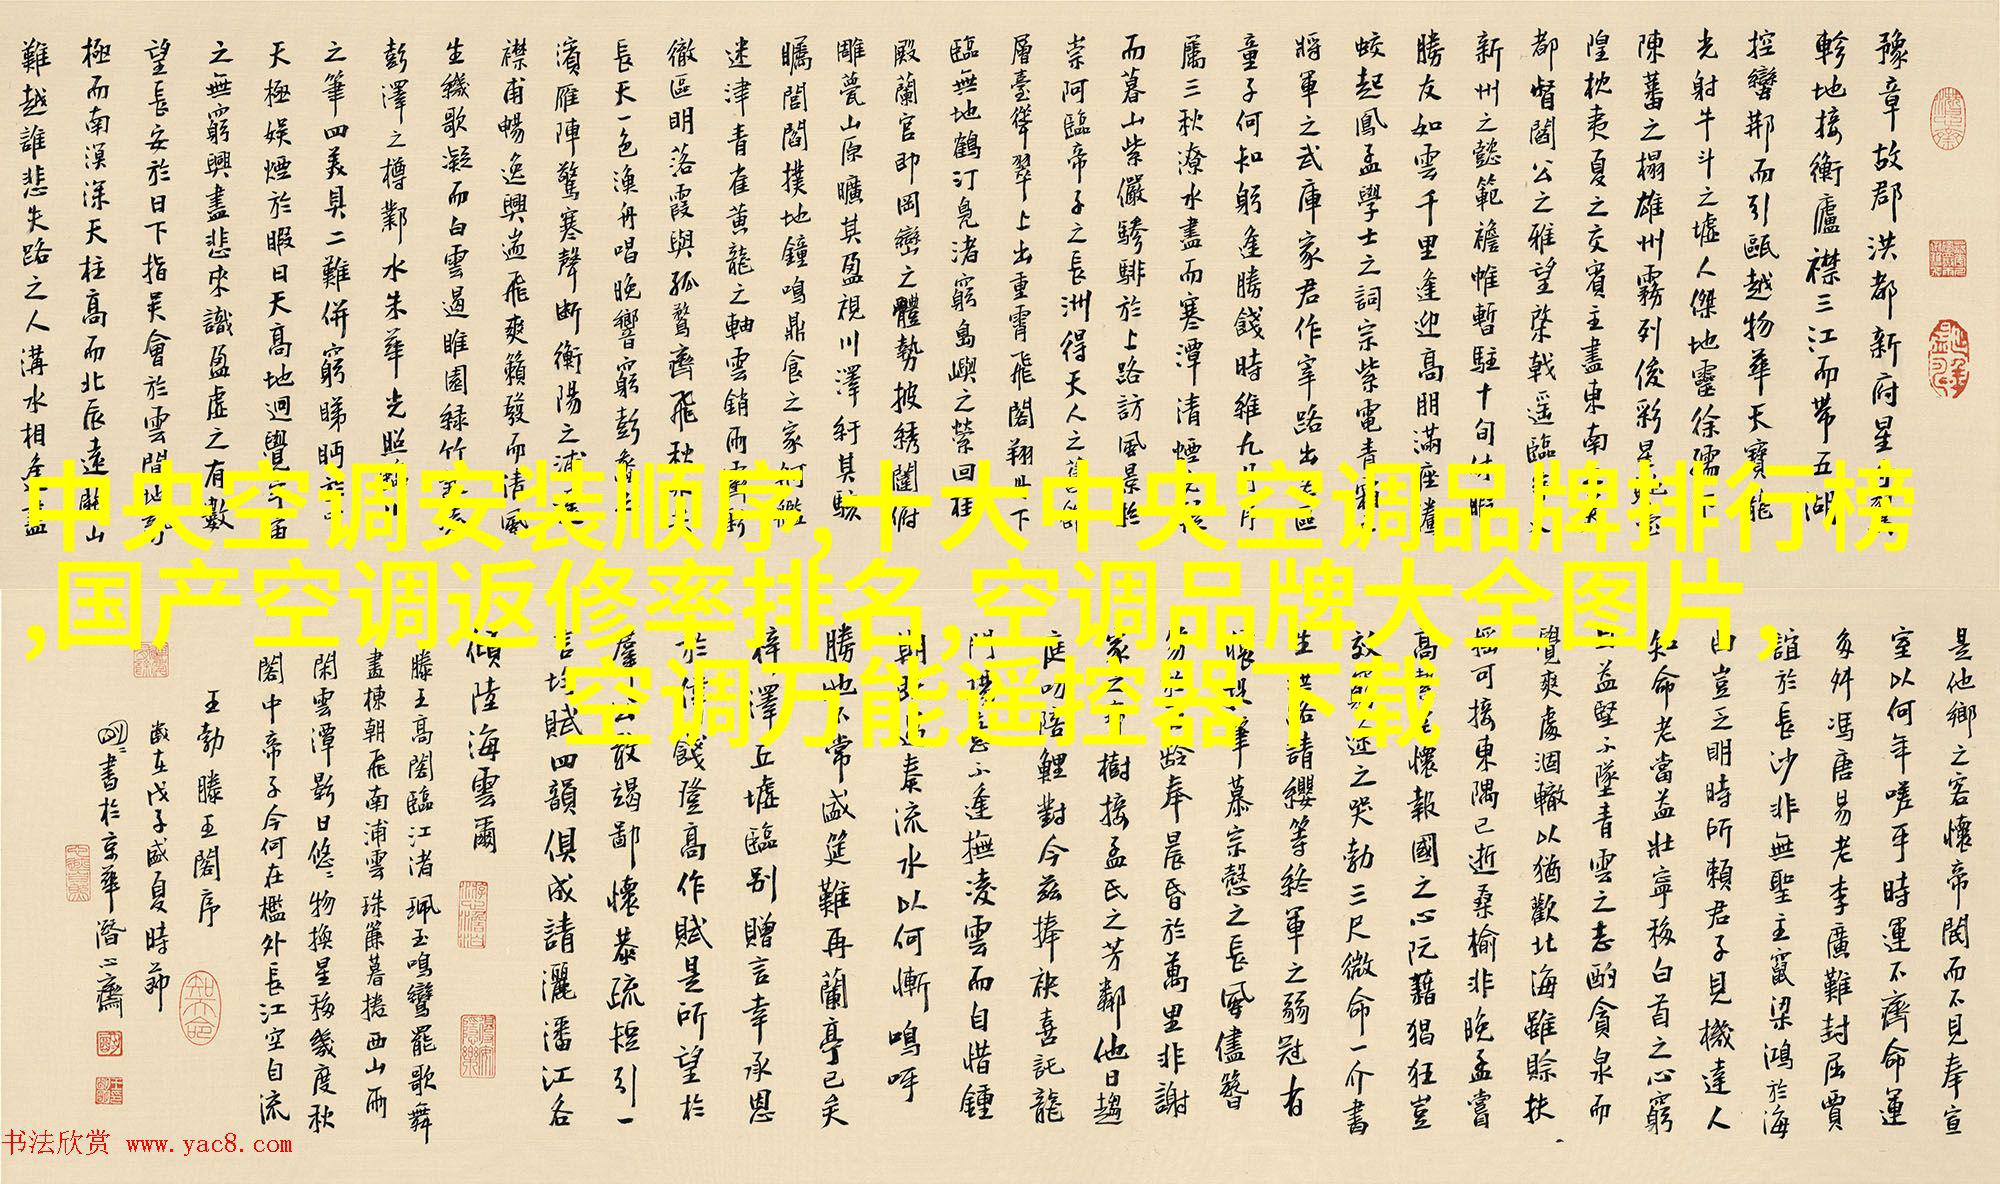 豫章故郡洪都新府星分翼
軫地接衡廬襟三江而帶五湖
控蠻荊而引甌越物華天寶龍
光射牛斗之墟人傑地靈徐孺下
陳蕃之榻雄州霧列俊彩星馳臺
隍枕夷夏之交賓主盡東南之美
都督閻公之雅望棨戟遥臨宇文
新州之懿範襜帷暫駐十旬休暇
勝友如雲千里逢迎高朋滿座騰
蛟起鳳孟學士之詞宗紫電青霜
將軍之武庫家君作宰路出名區
童子何知躬逢勝餞時維九月序
屬三秋潦水盡而寒潭清煙光凝
而暮山紫儼驂騑於上路訪風景於
崇阿臨帝子之長洲得天人之舊館
層臺聳翠上出重霄飛閣翔丹下
臨無地鶴汀鳧渚窮島嶼之縈回桂
殿蘭宮即岡巒之體勢披綉闥俯
雕甍山原曠其盈視川澤紆其駭
矚閭閻撲地鐘鳴鼎食之家舸艦
迷津青雀黄龍之軸雲銷雨霽彩
徹區明落霞與孤鶩齊飛秋水共
長天一色漁舟唱晚響窮彭蠡之
濱雁陣驚寒聲斷衡陽之浦遥
襟甫暢逸興遄飛爽籟發而清風
生纖歌凝而白雲遏睢園綠竹氣凌
彭澤之樽鄴水朱華光照臨川
之筆四美具二難併窮睇眄於中
天極娛煙於暇日天高地迥覺宇宙
之無窮興盡悲來識盈虛之有數
望長安於日下指吳會於雲間地勢
極而南溟深天柱高而北辰遠關山
難越誰悲失路之人溝水相逢盡
中央空调安装顺序,十大中央空调品牌排行榜
,国产空调返修率排名,空调品牌大全图片,
空调万能遥控器下载
是他鄉之客懷帝閽而不見奉宣
室以何年嗟乎時運不齊命運
多舛馮唐易老李廣難封屈賈
誼於長沙非無聖主竄梁鴻於海
曲豈乏明時所賴君子見機達人
知命老當益壯寧移白首之心窮
且益堅不墜青雲之志酌貪泉而
覺爽處涸轍以猶歡北海雖賒扶
摇可接東隅已逝桑榆非晚孟嘗
高潔空懷報國之心阮藉猖狂豈
效窮途之哭勃三尺微命一介書
生無路請纓等終軍之弱冠有
懷投筆慕宗慤之長風儘簪
笏於百齡奉晨昏於萬里非謝
家之寶樹接孟氏之芳鄰他日趨
庭叨陪鯉對今兹捧袂喜託龍
門楊意不逢撫凌雲而自惜鍾
期既遇奏流水以何慚嗚呼
勝地不常盛筵難再蘭亭已矣
梓澤丘墟臨别贈言幸承恩
於偉餞登高作賦是所望於
羣公敢竭鄙懷恭疏短引一
言均賦四韻俱成請灑潘江各
傾陸海雲爾
滕王高閣臨江渚珮玉鳴鸞罷歌舞
畫棟朝飛南浦雲珠簾暮捲西山雨
閑雲潭影日悠〻物換星移幾度秋
閣中帝子今何在檻外長江空自流
王勃滕王閣序
歲在戊子盛夏時節
書於京華潛心齋
书法欣赏 www.yac8.com